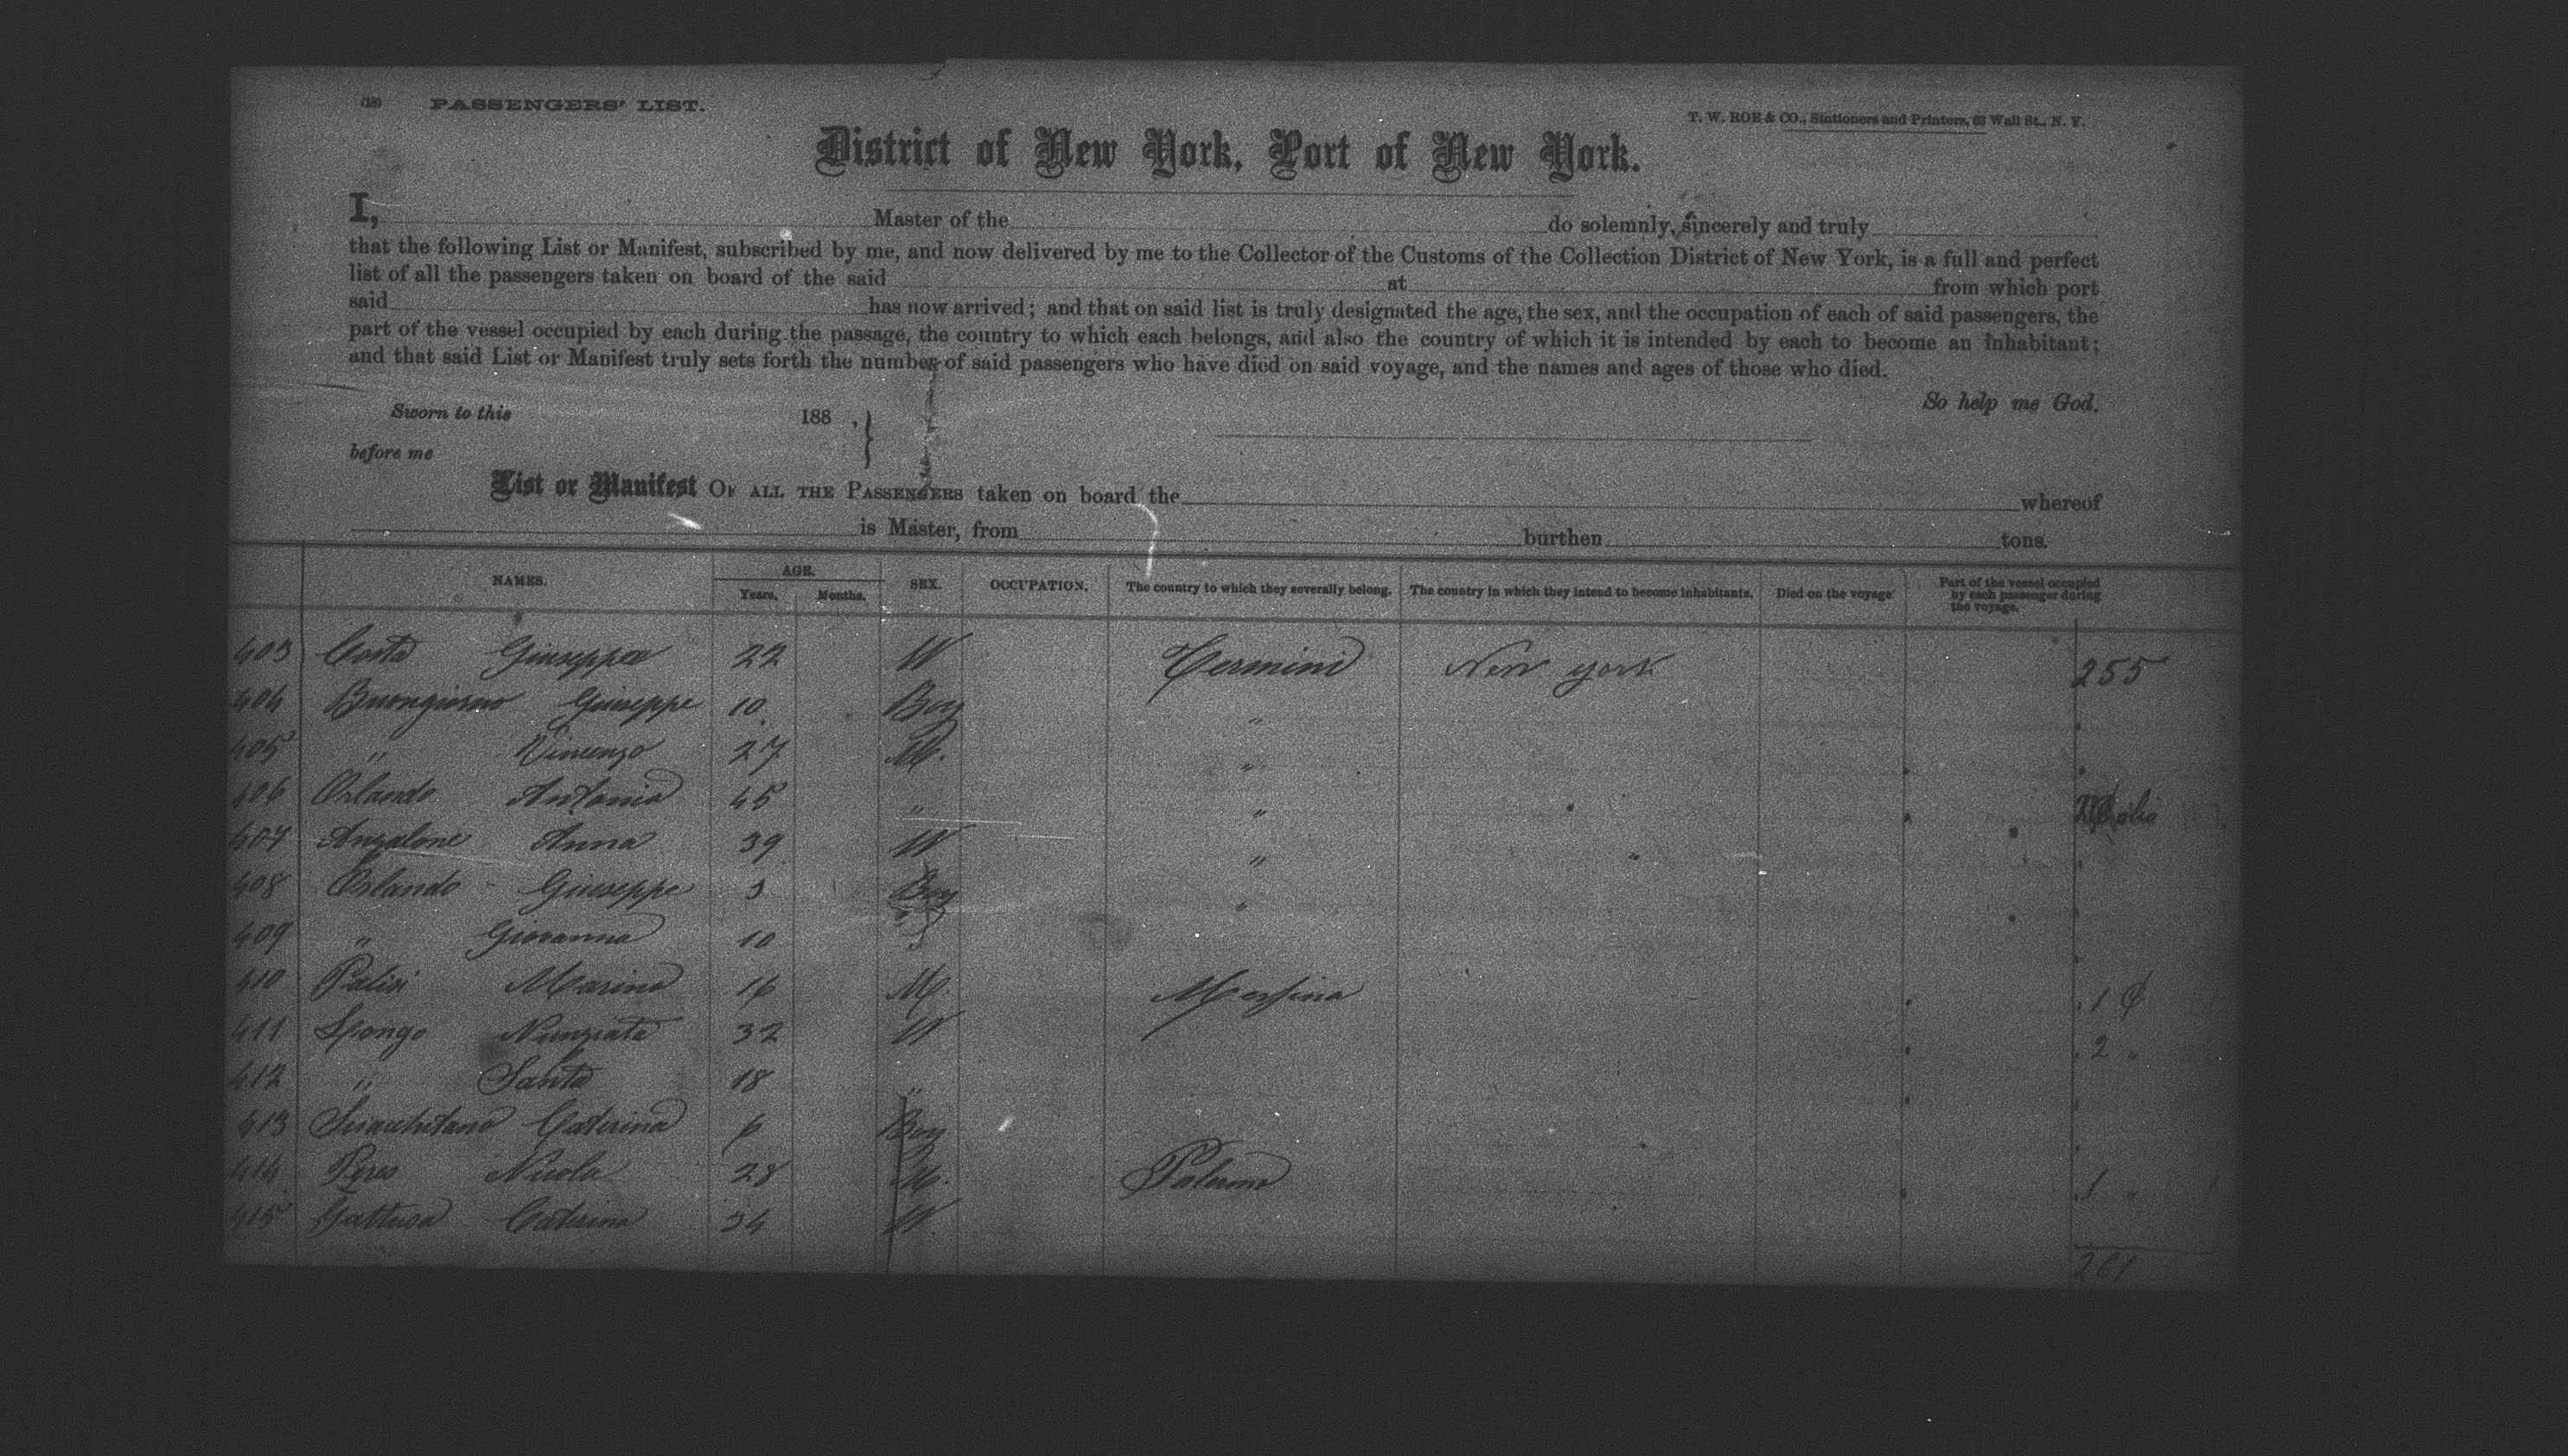 (18) PASSENGERS' LIST.
T. W. ROE & CO., Stationers and Printers, 63 Wall St., N. Y.
District of New York, Port of New York.
I, Master of the do solemnly, sincerely and truly
that the following List or Manifest, subscribed by me, and now delivered by me to the Collector of the Customs of the Collection District of New York, is a full and perfect
list of all the passengers taken on board of the said at from which port
said has now arrived; and that on said list is truly designated the age, the sex, and the occupation of each of said passengers, the
part of the vessel occupied by each during the passage, the country to which each belongs, and also the country of which it is intended by each to become an inhabitant;
and that said List or Manifest truly sets forth the number of said passengers who have died on said voyage, and the names and ages of those who died.
So help me God.
Sworn to this 188 , }
before me
List or Manifest OF ALL THE PASSENGERS taken on board the whereof
is Master, from burthen tons.
NAMES. AGE. Years. Months. SEX. OCCUPATION. The country to which they severally belong. The country in which they intend to become inhabitants. Died on the voyage. Part of the vessel occupied by each passenger during the voyage.
403 Costa Giuseppa 22 W Termini New York 255
404 Buongiorno Giuseppe 10 Boy "
405 " Vincenzo 27 M. "
406 Orlando Antonio 45 " "
407 Anzalone Anna 39 W "
408 Orlando Giuseppe 3 Boy "
409 " Giovanna 10 "
410 Palisi Marino 16 M. Messina 1
411 Spongo Nunziata 32 W 2 "
412 " Santa 18 "
413 Caterina 6 Boy
414 Peres Nicola 28 M. Palermo 1 "
415 Gattusa Caterina 34 W.
261